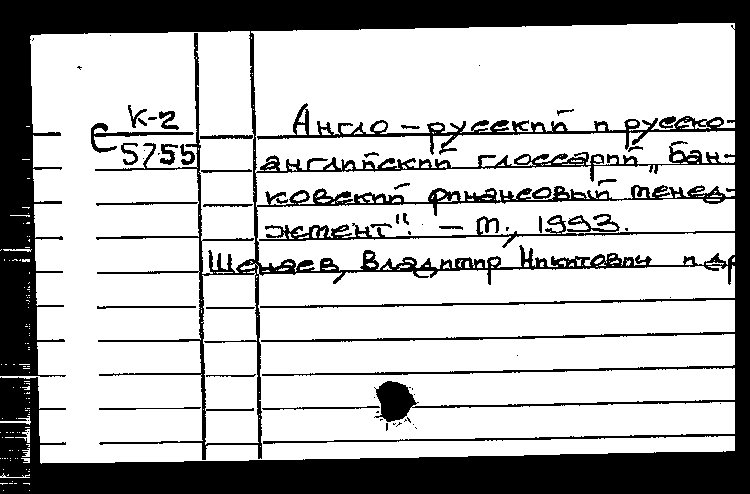 К-2
С 5755
Англо-русский и русско-
английский глоссарий „Бан-
ковский финансовый менед-
жмент". – М., 1993.
Шенаев, Владимир Никитович и др